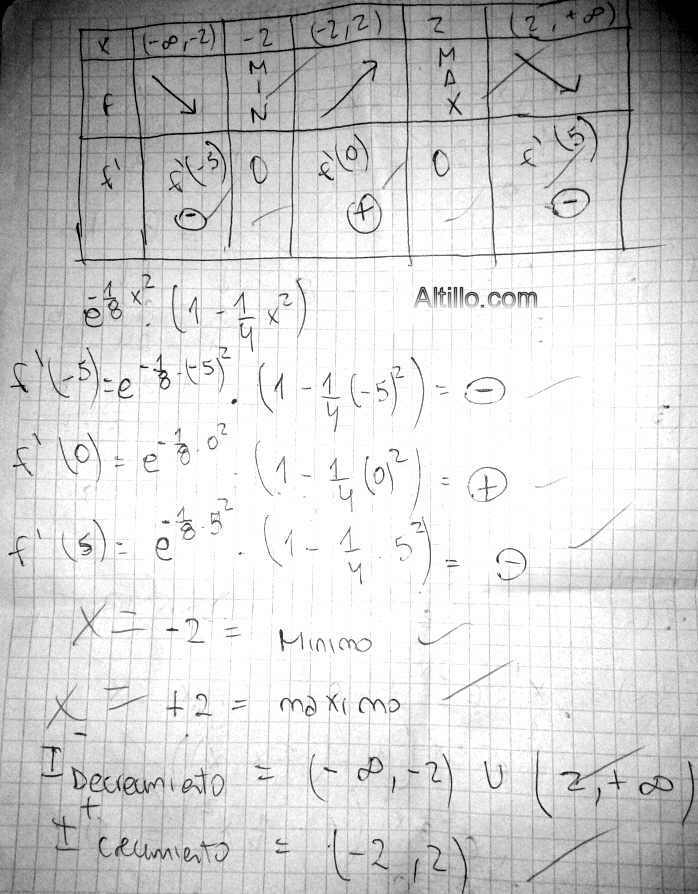 x (-∞,-2) -2 (-2,2) 2 (2,+∞)
f ↘ MIN ↗ MAX ↘
f' f'(-5) ⊖ 0 f'(0) ⊕ 0 f'(5) ⊖
Altillo.com
e^{-1/8 x²} · (1 - 1/4 x²)
f'(-5) = e^{-1/8·(-5)²} · (1 - 1/4 (-5)²) = ⊖
f'(0) = e^{-1/8·0²} · (1 - 1/4 (0)²) = ⊕
f'(5) = e^{-1/8·5²} · (1 - 1/4 · 5²) = ⊖
X = -2 = Minimo
X = +2 = maximo
I⁻ Decrecimiento = (-∞,-2) U (2,+∞)
I⁺ crecimiento = (-2,2)